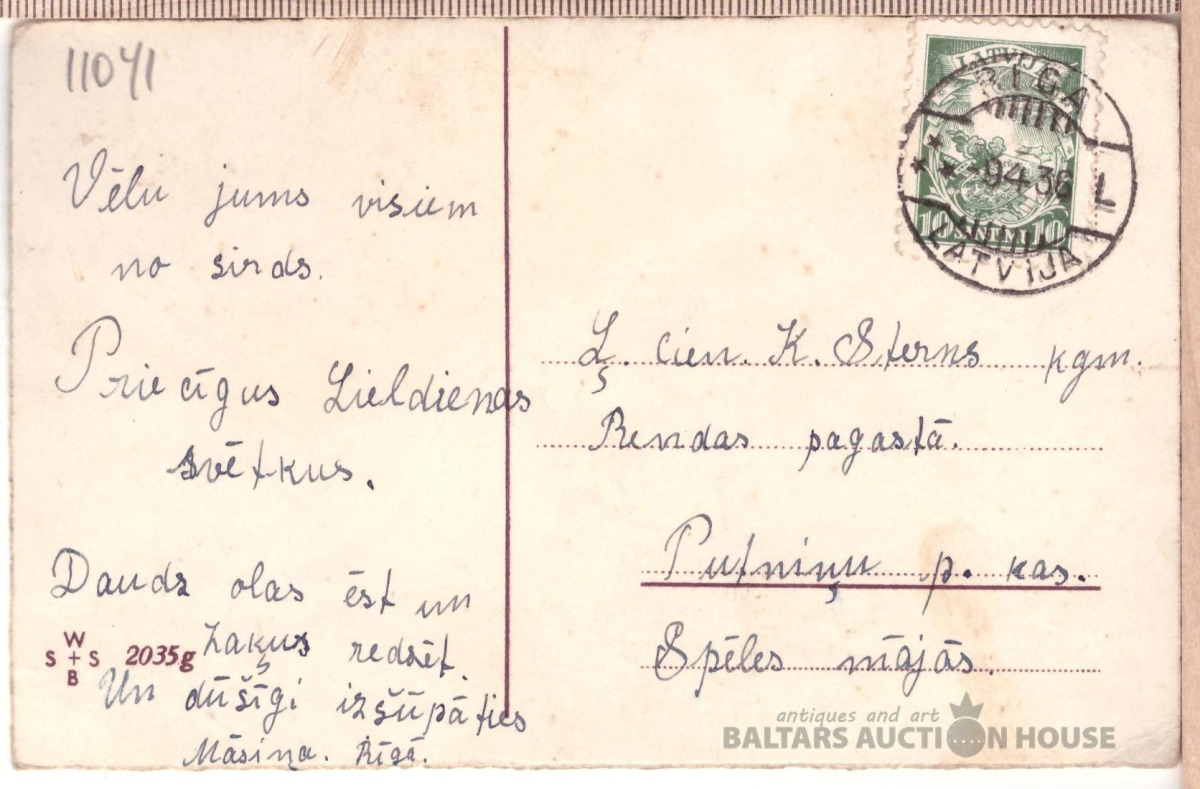 11041
Vēlu jums visiem
no sirds.
Priecīgus Lieldienas
svētkus.
Daudz olas ēst un
zaķus redzēt.
Un dūšīgi izšūpāties
Māsiņa. Rīgā.
W
S + S
B
2035g
LATVIJA
RIGA
-9.4.36
L
10 SANTIMU 10
LATVIJA
Ļ. cien. K. Sterns kgm.
Rendas pagastā.
Putniņu p. kas.
Spēles mājās.
antiques and art
BALTARS AUCTION HOUSE